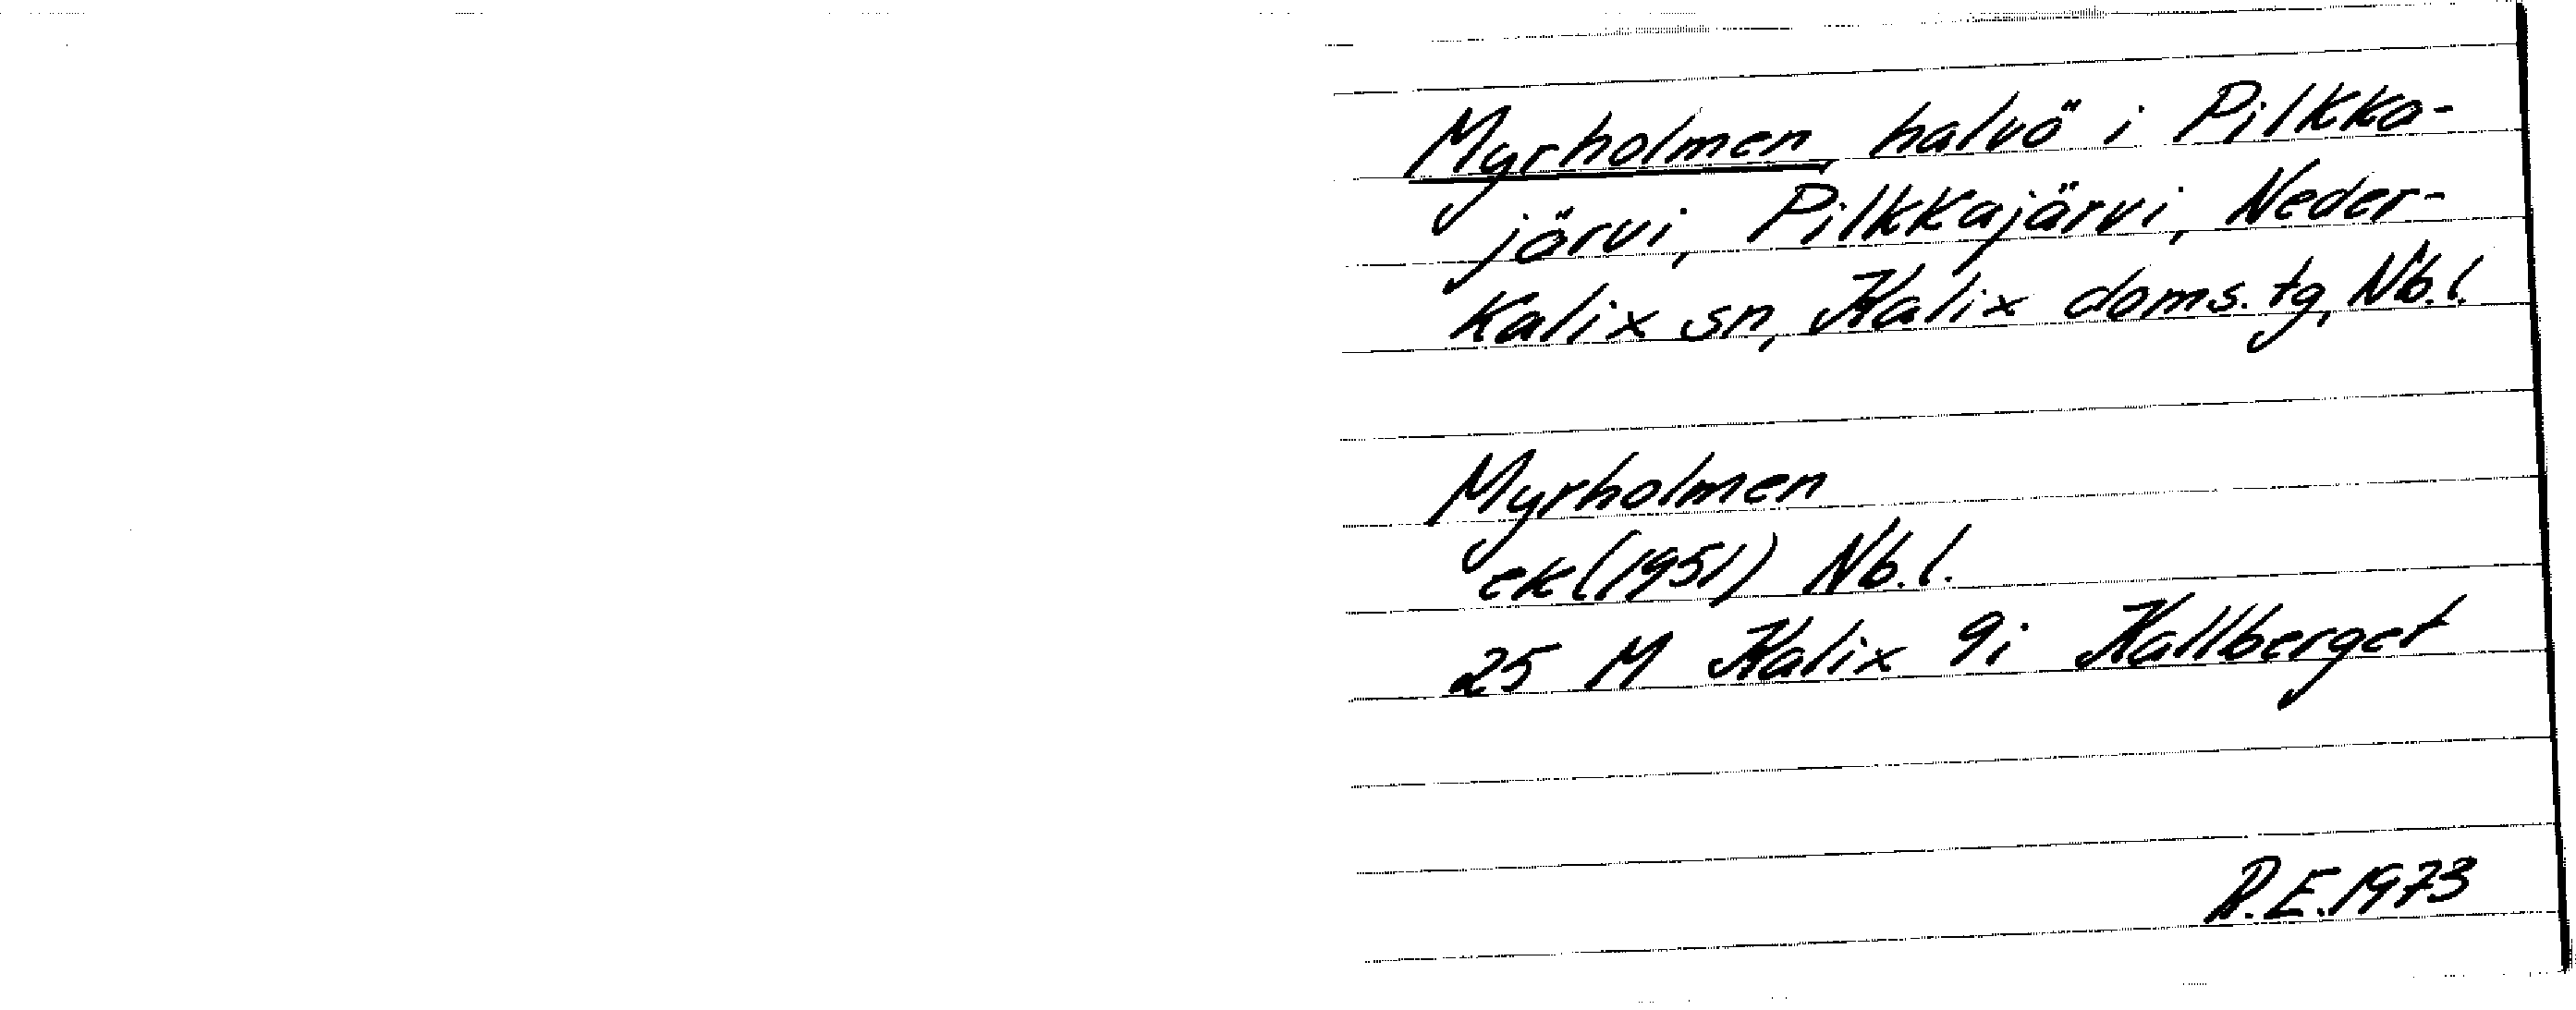 Myrholmen, halvö i Pilkka-
järvi, Pilkkajärvi, Neder-
Kalix sn, Kalix doms. tg, Nb.l.
Myrholmen
ek (1951) Nb.l.
25 M Kalix 9i Kallberget
R.E. 1973